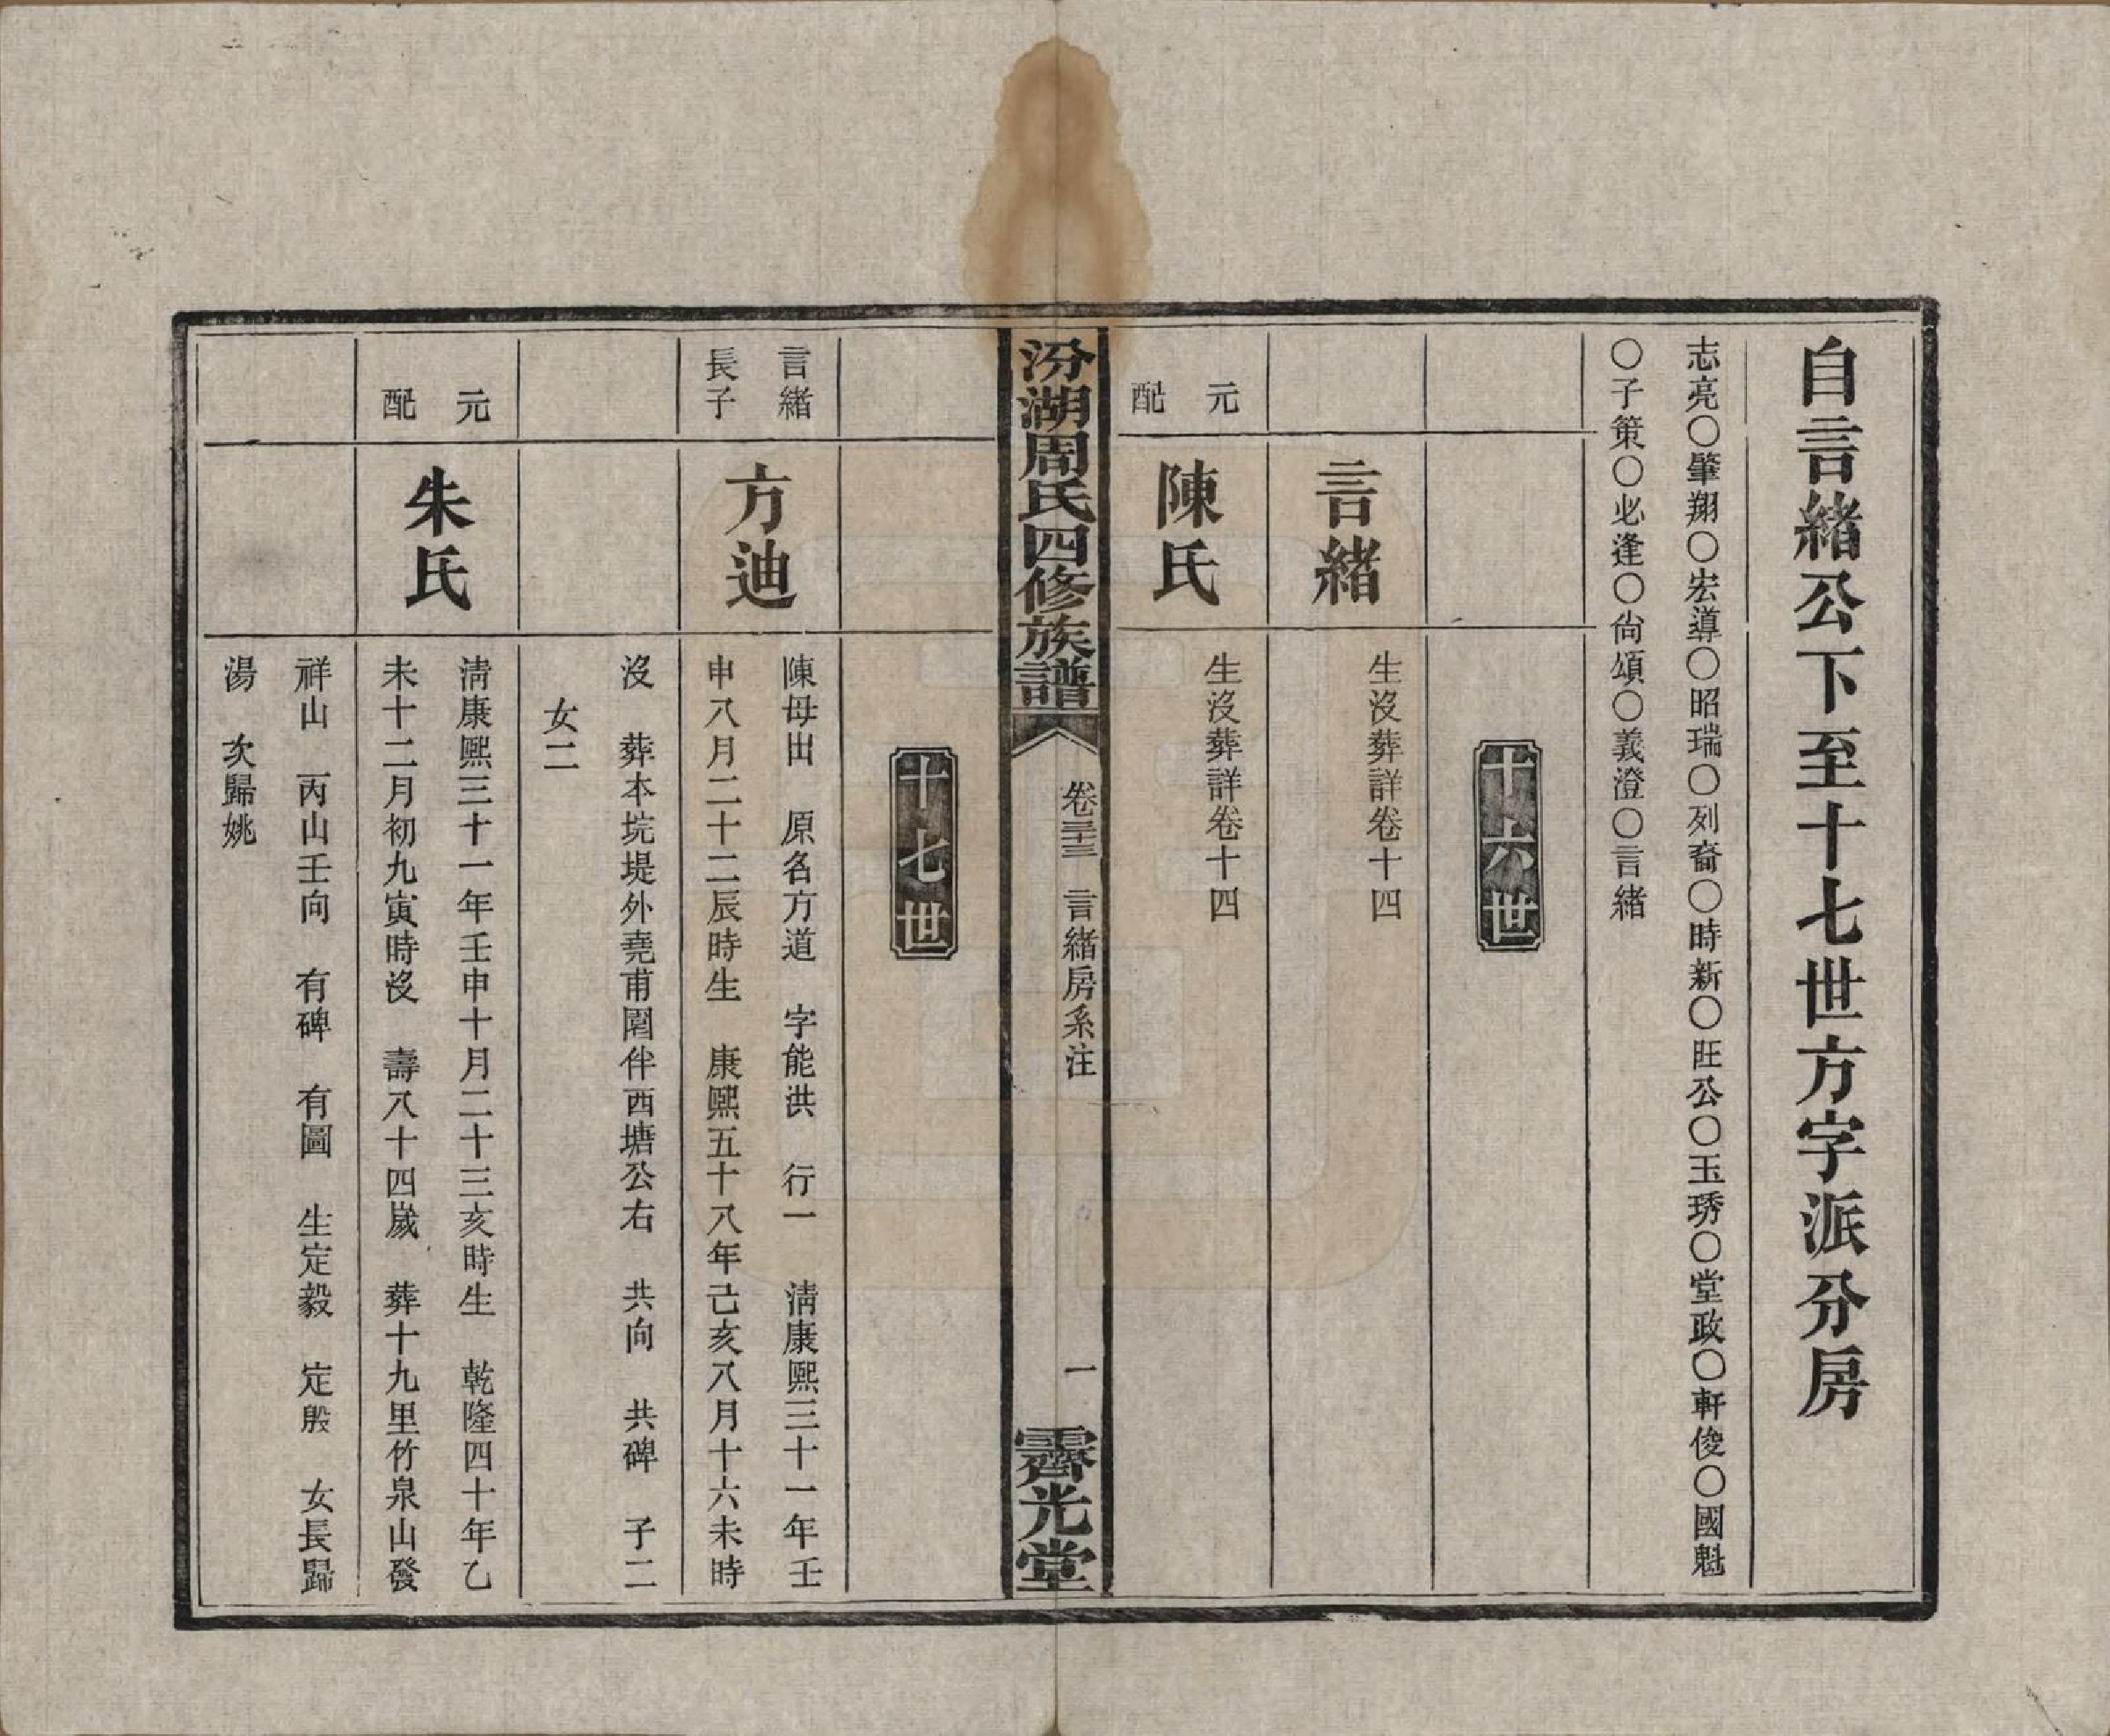 自言緒公下至十七世方字派分房
志亮○肇翔○宏導○昭瑞○列裔○時新○旺公○玉琇○堂政○軒俊○國魁
○子策○必逢○尙頌○義澄○言緒
十六世
言緒
生沒葬詳卷十四
元配
陳氏
生沒葬詳卷十四
汾湖周氏四修族譜
卷三十三 言緒房系注
一
霽光堂
十七世
言緒
長子
方迪
陳母出 原名方道 字能洪 行一 淸康熙三十一年壬
申八月二十二辰時生 康熙五十八年己亥八月十六未時
沒 葬本垸堤外堯甫園伴西塘公右 共向 共碑 子二
女二
元配
朱氏
淸康熙三十一年壬申十月二十三亥時生 乾隆四十年乙
未十二月初九寅時沒 壽八十四歲 葬十九里竹泉山發
祥山 丙山壬向 有碑 有圖 生定毅 定殷 女長歸
湯 次歸姚